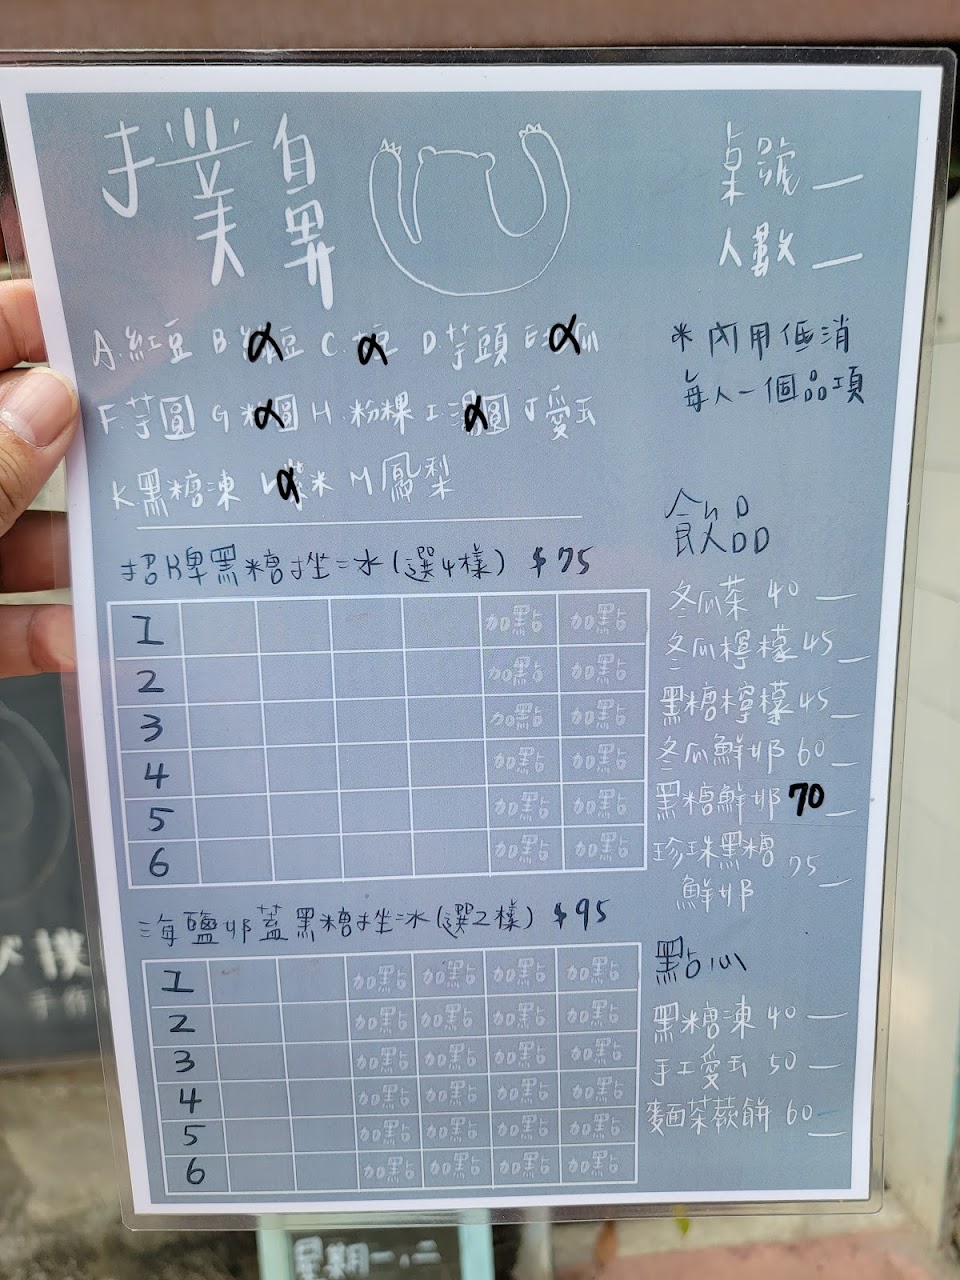 撲鼻
桌號
人數
A.紅豆 B 豆 C 豆 D 芋頭 E 瓜
F.芋圓 G 粉圓 H.粉粿 I.湯圓 J 愛玉
K黑糖凍 米 M 鳳梨
※內用低消
每人一個品項
招牌黑糖挫冰(選4樣) $75
1 加點 加點
2 加點 加點
3 加點 加點
4 加點 加點
5 加點 加點
6 加點 加點
海鹽奶蓋黑糖挫冰(選2樣) $95
1 加點 加點 加點 加點
2 加點 加點 加點 加點
3 加點 加點 加點 加點
4 加點 加點 加點 加點
5 加點 加點 加點 加點
6 加點 加點 加點 加點
飲品
冬瓜茶 40
冬瓜檸檬 45
黑糖檸檬 45
冬瓜鮮奶 60
黑糖鮮奶 70
珍珠黑糖 75
鮮奶
點心
黑糖凍 40
手工愛玉 50
麵茶蕨餅 60
撲
手作
星期一、二